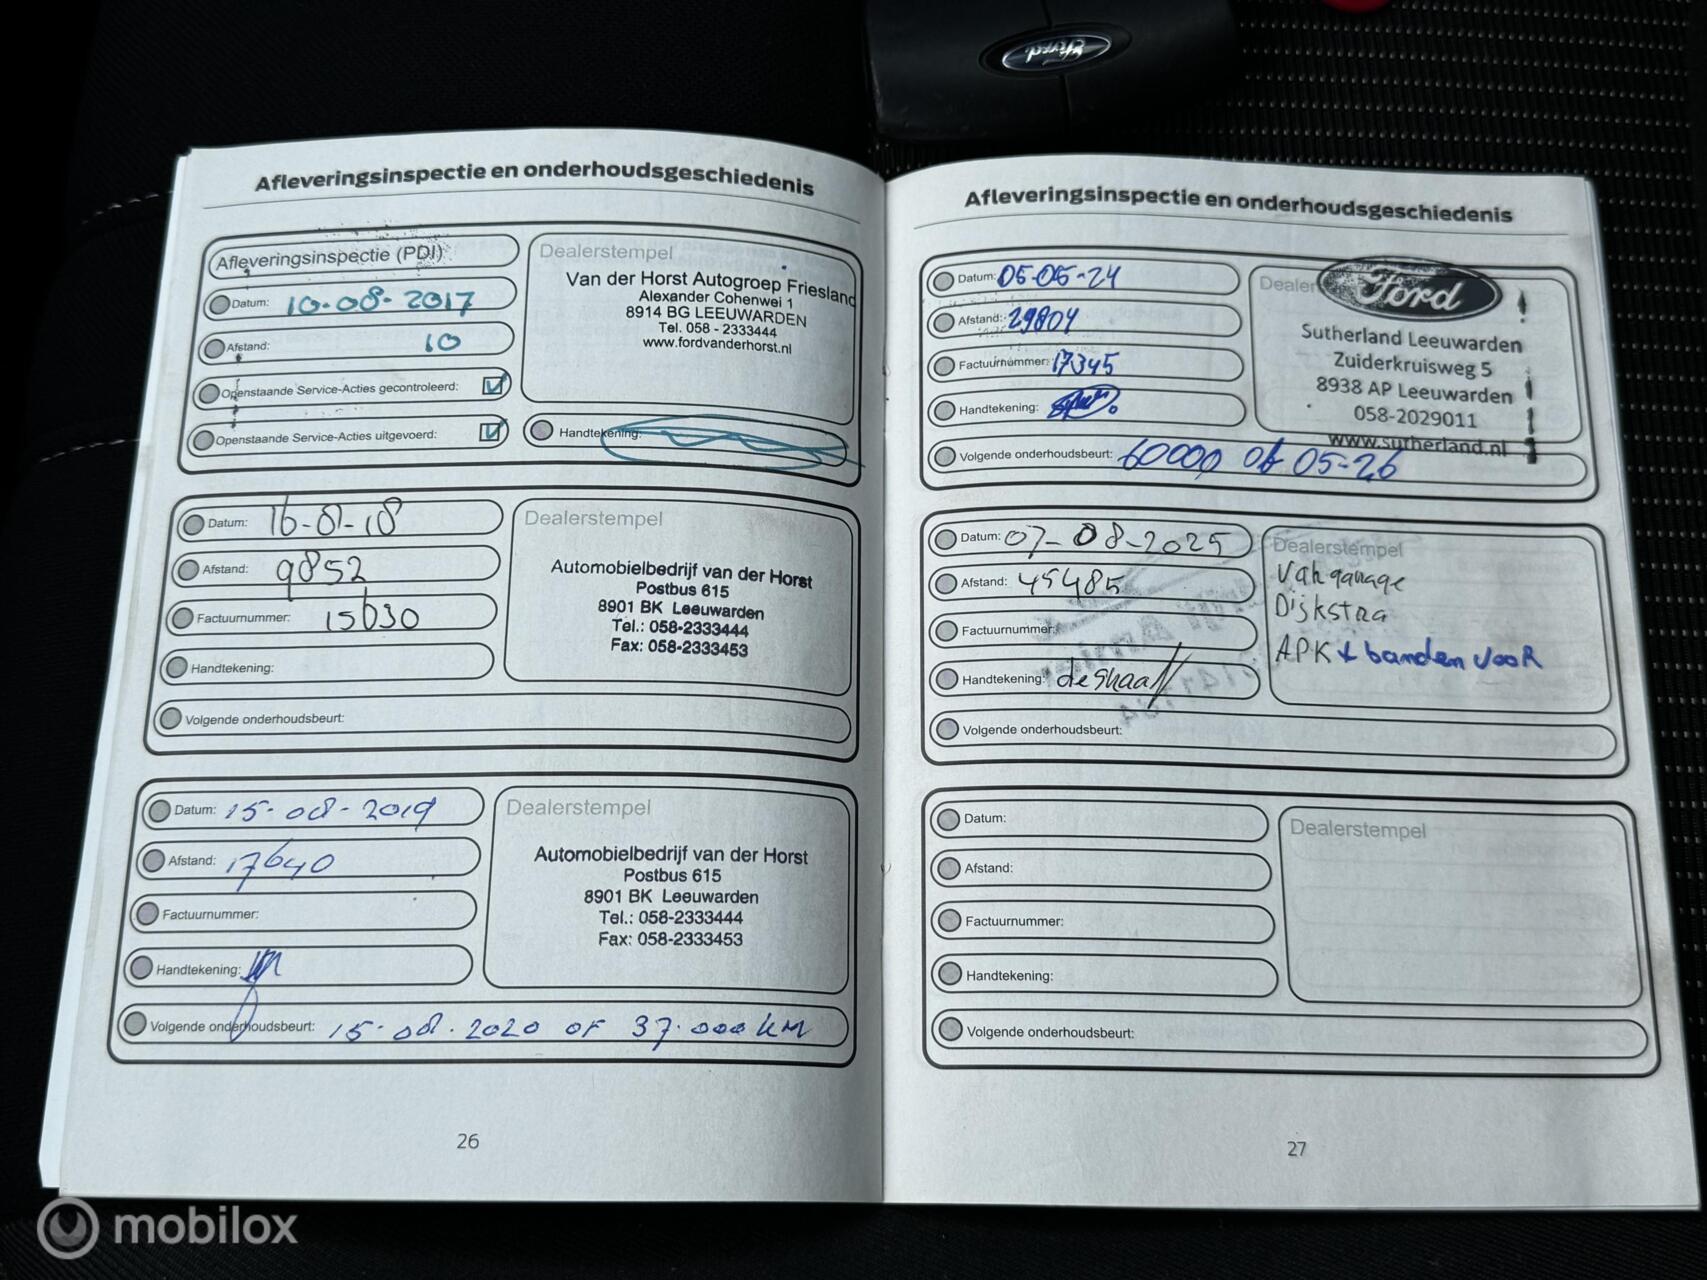 Ford
Afleveringsinspectie en onderhoudsgeschiedenis
Afleveringsinspectie (PDI)
Datum: 10-08-2017
Afstand: 10
Openstaande Service-Acties gecontroleerd:
Openstaande Service-Acties uitgevoerd:
Dealerstempel
Van der Horst Autogroep Friesland
Alexander Cohenwei 1
8914 BG LEEUWARDEN
Tel. 058 - 2333444
www.fordvanderhorst.nl
Handtekening:
Datum: 16-01-18
Afstand: 9852
Factuurnummer: 15630
Handtekening:
Volgende onderhoudsbeurt:
Dealerstempel
Automobielbedrijf van der Horst
Postbus 615
8901 BK Leeuwarden
Tel.: 058-2333444
Fax: 058-2333453
Datum: 15-08-2019
Afstand: 17640
Factuurnummer:
Handtekening:
Volgende onderhoudsbeurt: 15-08-2020 OF 37.000 KM
Dealerstempel
Automobielbedrijf van der Horst
Postbus 615
8901 BK Leeuwarden
Tel.: 058-2333444
Fax: 058-2333453
26
Afleveringsinspectie en onderhoudsgeschiedenis
Datum: 05-05-24
Afstand: 29804
Factuurnummer: 17345
Handtekening:
Volgende onderhoudsbeurt: 60000 of 05-26
Dealer
Ford
Sutherland Leeuwarden
Zuiderkruisweg 5
8938 AP Leeuwarden
058-2029011
www.sutherland.nl
Datum: 07-08-2025
Afstand: 45485
Factuurnummer:
Handtekening:
Volgende onderhoudsbeurt:
Dealerstempel
Vakgarage
Dijkstra
APK + banden VOOR
Datum:
Afstand:
Factuurnummer:
Handtekening:
Volgende onderhoudsbeurt:
Dealerstempel
27
mobilox